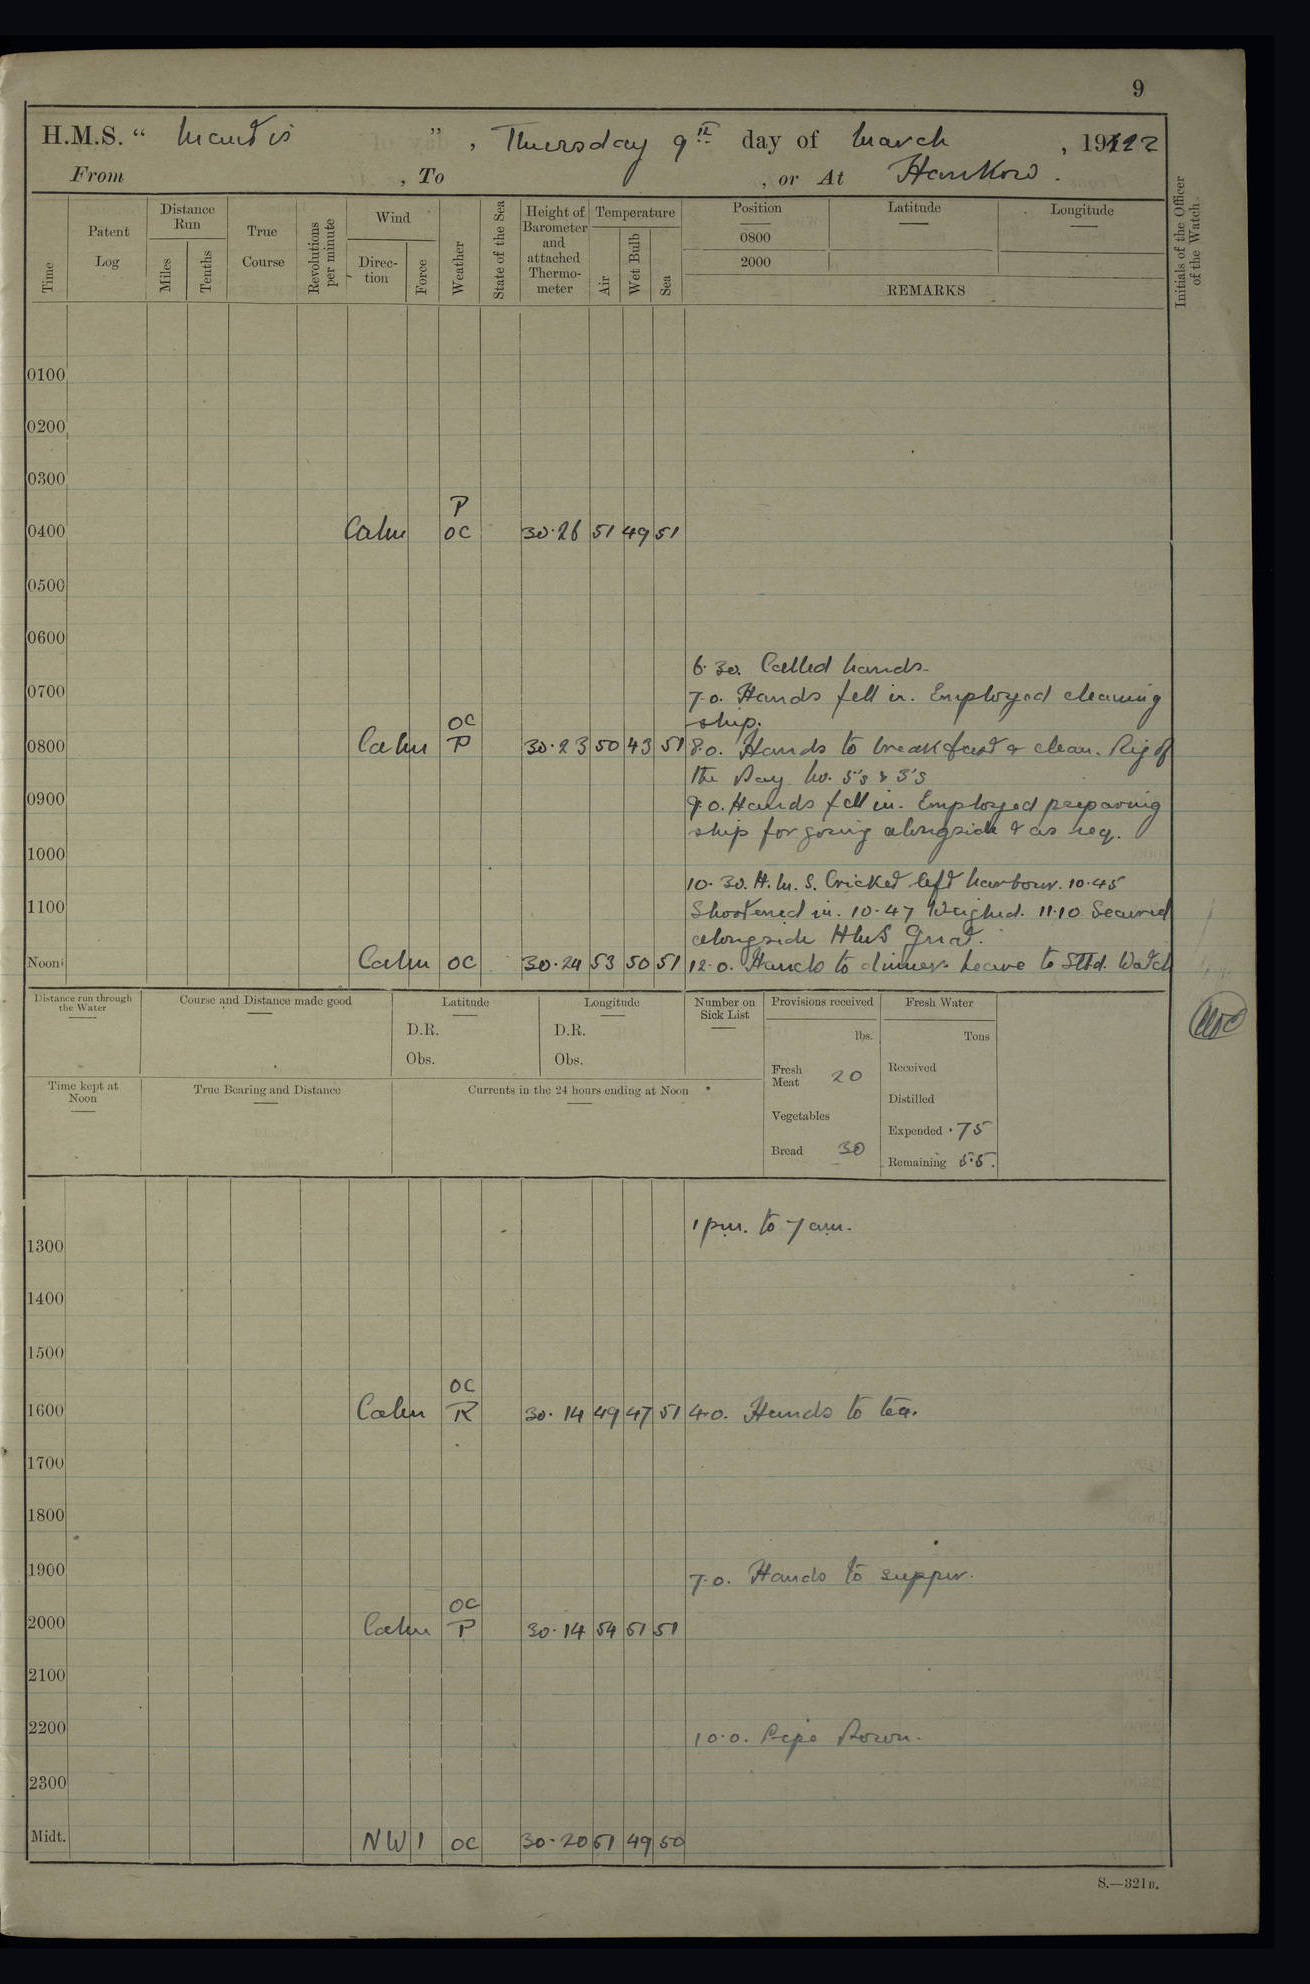 9
H.M.S. " Mantis ", Thursday 9th day of March, 1922
From , To , or At Hankow.
Time
Patent Log
Distance Run
Miles
Tenths
True Course
Revolutions per minute
Wind
Direction
Force
Weather
State of the Sea
Height of Barometer and attached Thermometer
Temperature
Air
Wet Bulb
Sea
Position
0800
2000
Latitude
Longitude
REMARKS
Initials of the Officer of the Watch.
0100
0200
0300
P
0400 Calm OC 30.26 51 49 51
0500
0600
6.30. Called hands.
0700 7.0. Hands fell in. Employed cleaning
OC ship.
0800 Calm P 30.23 50 43 51 8.0. Hands to breakfast & clean. Rig of
the Day No. 5's & 3's
0900 9.0. Hands fell in. Employed preparing
ship for going alongside & as req.
1000
10.30. H.M.S. Cricket left harbour. 10.45
1100 Shortened in. 10.47 Weighed. 11.10 Secured
alongside HMS Gnat.
Noon Calm OC 30.24 53 50 51 12.0. Hands to dinner. Leave to Stbd. Watch
Distance run through the Water
Course and Distance made good
Latitude
D.R.
Obs.
Longitude
D.R.
Obs.
Number on Sick List
Provisions received
lbs.
Fresh Meat 20
Vegetables
Bread 30
Fresh Water
Tons
Received
Distilled
Expended .75
Remaining 5.5.
Time kept at Noon
True Bearing and Distance
Currents in the 24 hours ending at Noon
1 pm. to 7 am.
1300
1400
1500
OC
1600 Calm R 30.14 49 47 51 4.0. Hands to tea.
1700
1800
1900 7.0. Hands to supper.
OC
2000 Calm P 30.14 54 51 51
2100
2200 10.0. Pipe Down.
2300
Midt. NW 1 OC 30.20 51 49 50
S.—321B.